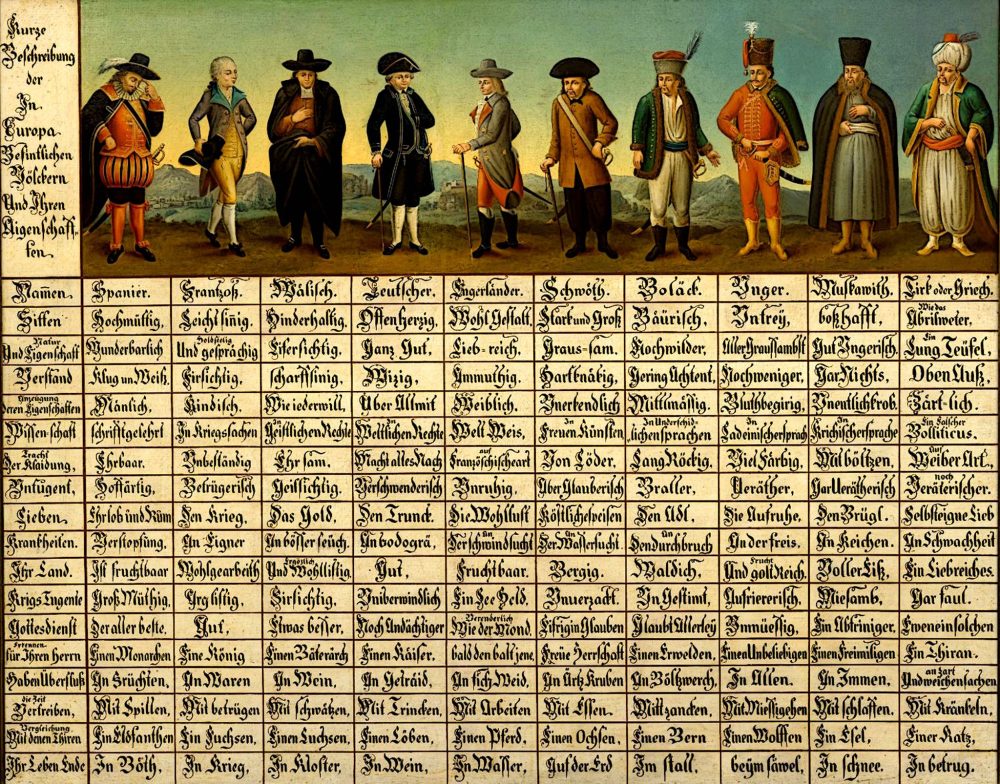 Kurze
Beschreibung
der
In
Europa
Befintlichen
Völckern
Und Ihren
Aigenschaff-
ten.
Namen. Spanier. Frantzoß. Wälisch. Teutscher. Engerländer. Schwöth. Boläck. Unger. Muskawith. Tirk oder Griech.
Sitten Hochmüttig, Leichtsinig. Hinderhaltig. Offenherzig, Wohl Gestalt, Stark und Groß Bäurisch, Untrey, boßhafft, Wie das Abrilweter,
Natur Und Eigenschaft Wunderbarlich Holdseelig Und gesprächig Eifersichtig. Ganz Gut, Lieb-reich, Graus-sam, Nochwilder, Aller Graussambst Gut Ungerisch, Ein Lung Teüfel,
Verstand Klug un Weiß, Firsichtig, scharffsinig, Wizig, Ammuthig. Hartknäkig, Gering Achtent, Nochweniger, Gar Nichts, Oben Auß,
Anzeugung deren Eigenschaften Mänlich, Kindisch, Wie iederwill, Über Allmit Weiblich. Unerkendlich Mittlmässig. Bluthbegirig, Unentlichkrob, Zärt-lich.
Wissenschaft schrifftgelehrt In Kriegssachen Geistlichen Rechte Weltlichen Rechte Welt Weis, In Freuen Künsten In Underschid-lichen sprachen In Ladeinischer sprach In Krichischer sprache Ein Falscher Bolliticus.
Tracht Der Klaidung, Ehrbaar, Unbeständig Ehrsam, Macht alles Nach auf Französchischeart Von Löder, Lang Röckig, Viel Färbig, Mit böltzen, Auf Weiber Art,
Untugent, Hoffärtig, Betrügerisch Geilsichtig, Verschwenderisch Unruhig, Aber Glauberisch Braller, Veräther, Gar Verätherisch noch Veräterischer.
Lieben Ehrlob und Rüm Den Krieg, Das Gold, Den Trunck. Die Wohllust Köstlichespeisen Den Adl, Die Aufruhe, Den Brügl, Selbsteigne Lieb
Krankheiten. Verstopfung, An Eigner An bösser seüch, An bodogrä, An Der schwindsucht An Der Wassersucht. An Den durchbruch An der freis, An Keichen, An Schwachheit
Ihr Land. Ist fruchtbaar Wohlgearbeith Ergözlich Und Wohllistig Gut, Fruchtbaar. Bergig. Waldich, Frucht Und golt Reich. Voller Eiß, Ein Liebreiches.
Krigs Tugente Groß Müthig, Arglistig, Firsichtig, Uniberwindlich Ein See Held. Unuerzackt, Un Gestimt, Aufriererisch, Miesamb, Gar faul.
Gottesdienst Der aller beste. Gut, Etwas besser, Noch Andächtiger Veränderlich Wie der Mond. Eifrig in Glauben Glaubt Allerley Unmüessig, Ein Abtriniger, Eweneinsolchen
Erkennen für Ihren Herrn Einen Monarchen Eine König Einen Bäterärch Einen Käiser. bald den balt jene, Freüe Herrschaft Einen Erwelden, Einen Unbeliebigen Einen Freimiligen Ein Thiran.
Haben Überfluß In Früchten, An Waren In Wein, An Getraid, An fich Weid, An Ärtz Kruben An Böltzwerch, In Allen. An Immen, an Zart Und weichen sachen
die Zeit Vertreiben, Mit Spillen, Mit betrügen Mit schwätzen, Mit Trincken, Mit Arbeiten Mit Essen. Mit zancken. Mit Miessigehen Mit schlaffen. Mit Kränkeln,
Vergleichung Mit denen Thiren Ein Elofanthen Ein Fuchsen, Einen Luchsen. Einen Löben, Einen Pferd, Einen Ochsen, Einen Bern Einen Wolffen Ein Esel, Einer Katz,
Ihr Leben Ende In Böth, In Krieg, In Kloster, In Wein, In Wasser, Auf der Erd Im stall, beym säwel, In schnee. In betrug.